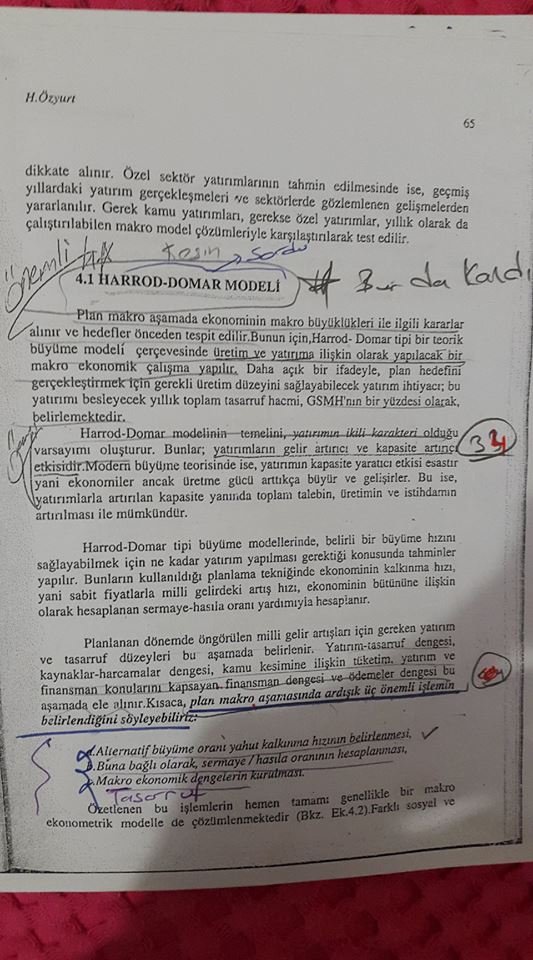 H.Özyurt
65
dikkate alınır. Özel sektör yatırımlarının tahmin edilmesinde ise, geçmiş
yıllardaki yatırım gerçekleşmeleri ve sektörlerde gözlemlenen gelişmelerden
yararlanılır. Gerek kamu yatırımları, gerekse özel yatırımlar, yıllık olarak da
çalıştırılabilen makro model çözümleriyle karşılaştırılarak test edilir.
Önemli Kesin Sordu
4.1 HARROD-DOMAR MODELİ Bur da Kandı
Plan makro aşamada ekonominin makro büyüklükleri ile ilgili kararlar
alınır ve hedefler önceden tespit edilir.Bunun için,Harrod- Domar tipi bir teorik
büyüme modeli çerçevesinde üretim ve yatırıma ilişkin olarak yapılacak bir
makro ekonomik çalışma yapılır. Daha açık bir ifadeyle, plan hedefini
gerçekleştirmek için gerekli üretim düzeyini sağlayabilecek yatırım ihtiyacı; bu
yatırımı besleyecek yıllık toplam tasarruf hacmi, GSMH'nın bir yüzdesi olarak,
belirlemektedir.
Harrod-Domar modelinin temelini, yatırımın ikili karakteri olduğu
varsayımı oluşturur. Bunlar; yatırımların gelir artırıcı ve kapasite artırıcı
etkisidir.Modern büyüme teorisinde ise, yatırımın kapasite yaratıcı etkisi esastır
yani ekonomiler ancak üretme gücü arttıkça büyür ve gelişirler. Bu ise,
yatırımlarla artırılan kapasite yanında toplam talebin, üretimin ve istihdamın
artırılması ile mümkündür.
Harrod-Domar tipi büyüme modellerinde, belirli bir büyüme hızını
sağlayabilmek için ne kadar yatırım yapılması gerektiği konusunda tahminler
yapılır. Bunların kullanıldığı planlama tekniğinde ekonominin kalkınma hızı,
yani sabit fiyatlarla milli gelirdeki artış hızı, ekonominin bütününe ilişkin
olarak hesaplanan sermaye-hasıla oranı yardımıyla hesaplanır.
Planlanan dönemde öngörülen milli gelir artışları için gereken yatırım
ve tasarruf düzeyleri bu aşamada belirlenir. Yatırım-tasarruf dengesi,
kaynaklar-harcamalar dengesi, kamu kesimine ilişkin tüketim, yatırım ve
finansman konularını kapsayan finansman dengesi ve ödemeler dengesi bu
aşamada ele alınır.Kısaca, plan makro aşamasında ardışık üç önemli işlemin
belirlendiğini söyleyebiliriz:
a.Alternatif büyüme oranı yahut kalkınma hızının belirlenmesi,
b.Buna bağlı olarak, sermaye / hasıla oranının hesaplanması,
c.Makro ekonomik dengelerin kurulması.
Tasarruf
Özetlenen bu işlemlerin hemen tamamı genellikle bir makro
ekonometrik modelle de çözümlenmektedir (Bkz. Ek.4.2).Farklı sosyal ve